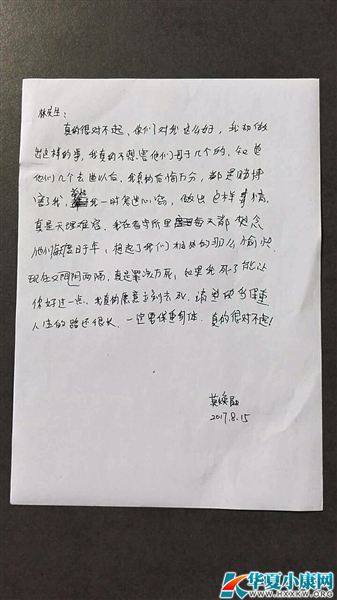 林先生：
真的很对不起，你们对我这么好，我却做
出这样的事，我真的不想害他们母子几个的，知道
他们几个去世以后，我真的后悔万分，都是赌博
害了我，我一时鬼迷心窍，做出这样事情，
真是天理难容，我在看守所里每天都想念
他们母子，想起了我们相处的那么愉快，
现在又阴阳两隔，真是罪该万死，如果我死了能让
你好过一点，我真的愿意立刻去死，请您多保重
人生的路还很长，一定要保重身体，真的很对不起！
莫焕晶
2017.8.15
华夏小康网
WWW.HXXKW.ORG